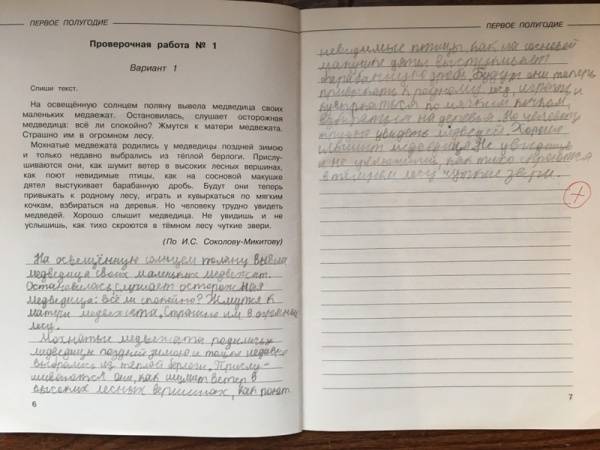 ПЕРВОЕ ПОЛУГОДИЕ
Проверочная работа № 1
Вариант 1
Спиши текст.
На освещённую солнцем поляну вывела медведица своих
маленьких медвежат. Остановилась, слушает осторожная
медведица: всё ли спокойно? Жмутся к матери медвежата.
Страшно им в огромном лесу.
Мохнатые медвежата родились у медведицы поздней зимою
и только недавно выбрались из тёплой берлоги. Прислу-
шиваются они, как шумит ветер в высоких лесных вершинах,
как поют невидимые птицы, как на сосновой макушке
дятел выстукивает барабанную дробь. Будут они теперь
привыкать к родному лесу, играть и кувыркаться по мягким
кочкам, взбираться на деревья. Но человеку трудно увидеть
медведей. Хорошо слышит медведица. Не увидишь и не
услышишь, как тихо скроются в тёмном лесу чуткие звери.
(По И.С. Соколову-Микитову)
На освещённую солнцем поляну вывела
медведица своих маленьких медвежат.
Остановилась, слушает осторожная
медведица: всё ли спокойно? Жмутся к
матери медвежата. Страшно им в огромном
лесу.
Мохнатые медвежата родились у
медведицы поздней зимою и только недавно
выбрались из тёплой берлоги. Прислу-
шиваются они, как шумит ветер в
высоких лесных вершинах, как поют
6
ПЕРВОЕ ПОЛУГОДИЕ
невидимые птицы, как на сосновой
макушке дятел выстукивает
барабанную дробь. Будут они теперь
привыкать к родному лесу, играть и
кувыркаться по мягким кочкам,
взбираться на деревья. Но человеку
трудно увидеть медведей. Хорошо
слышит медведица. Не увидишь
и не услышишь, как тихо скроются
в тёмном лесу чуткие звери.
7